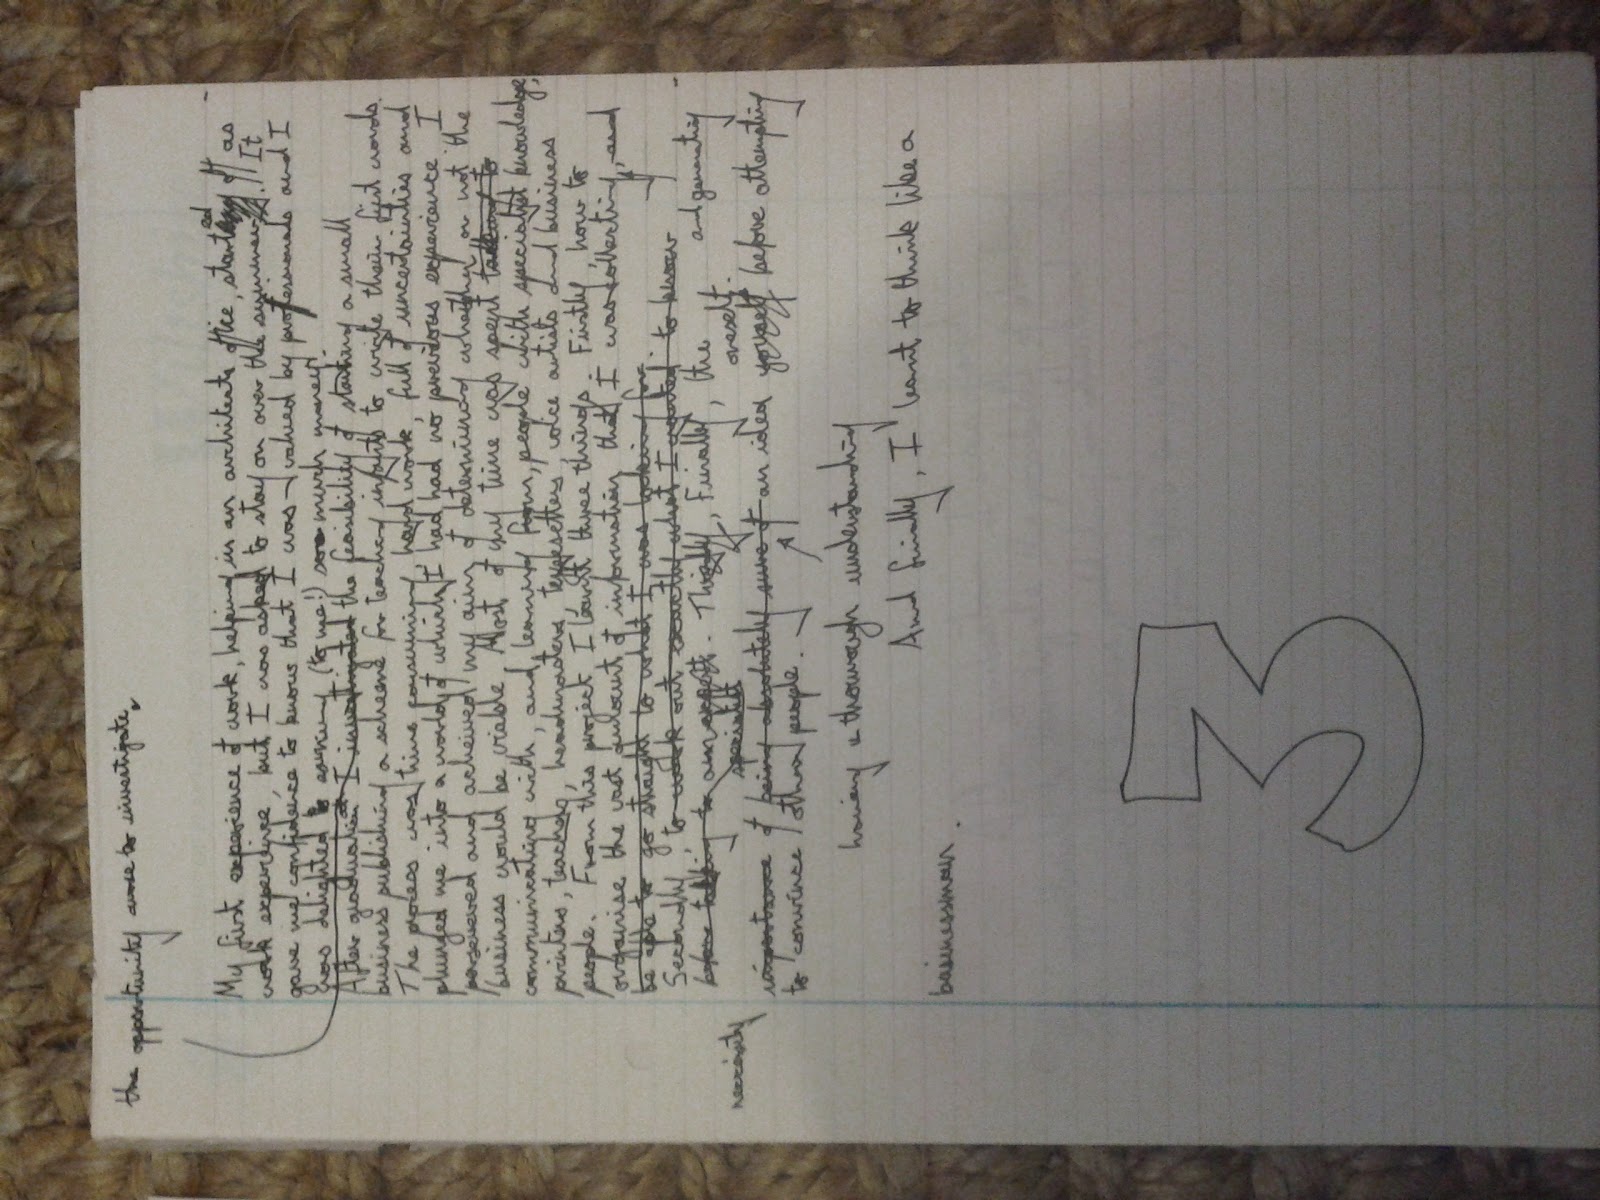 the opportunity arose to investigate
My first experience of work, helping in an architects office, started off as
work experience, but I was asked to stay on over the summer. It
gave me confidence to know that I was valued by professionals and I
was delighted to earning (to me!) so much money.
After graduation I investigated the feasibility of starting a small
business publishing a scheme for teaching infants to write their first words.
The process was time consuming, hard work, full of uncertainties and
plunged me into a world of which I had had no previous experience. I
persevered and acheived my aims of determining whether or not the
business would be viable. Most of my time was spent talking to
communicating with, and learning from, people with specialist knowledge,
printers, teachers, headmasters, typesetters, voice artists and business
people. From this project I learnt three things. Firstly, how to
organise the vast amount of information that I was collecting, and
be able to go straight to what I was looking for.
Secondly, to work out exactly what I wanted to know
before talking to an expert. Thirdly, Finally, the and generating
specialist oneself.
necessity importance of being absolutely sure of an idea yourself before attempting
to convince other people.
having a thorough understanding
And finally, I learnt to think like a
businessman.
3